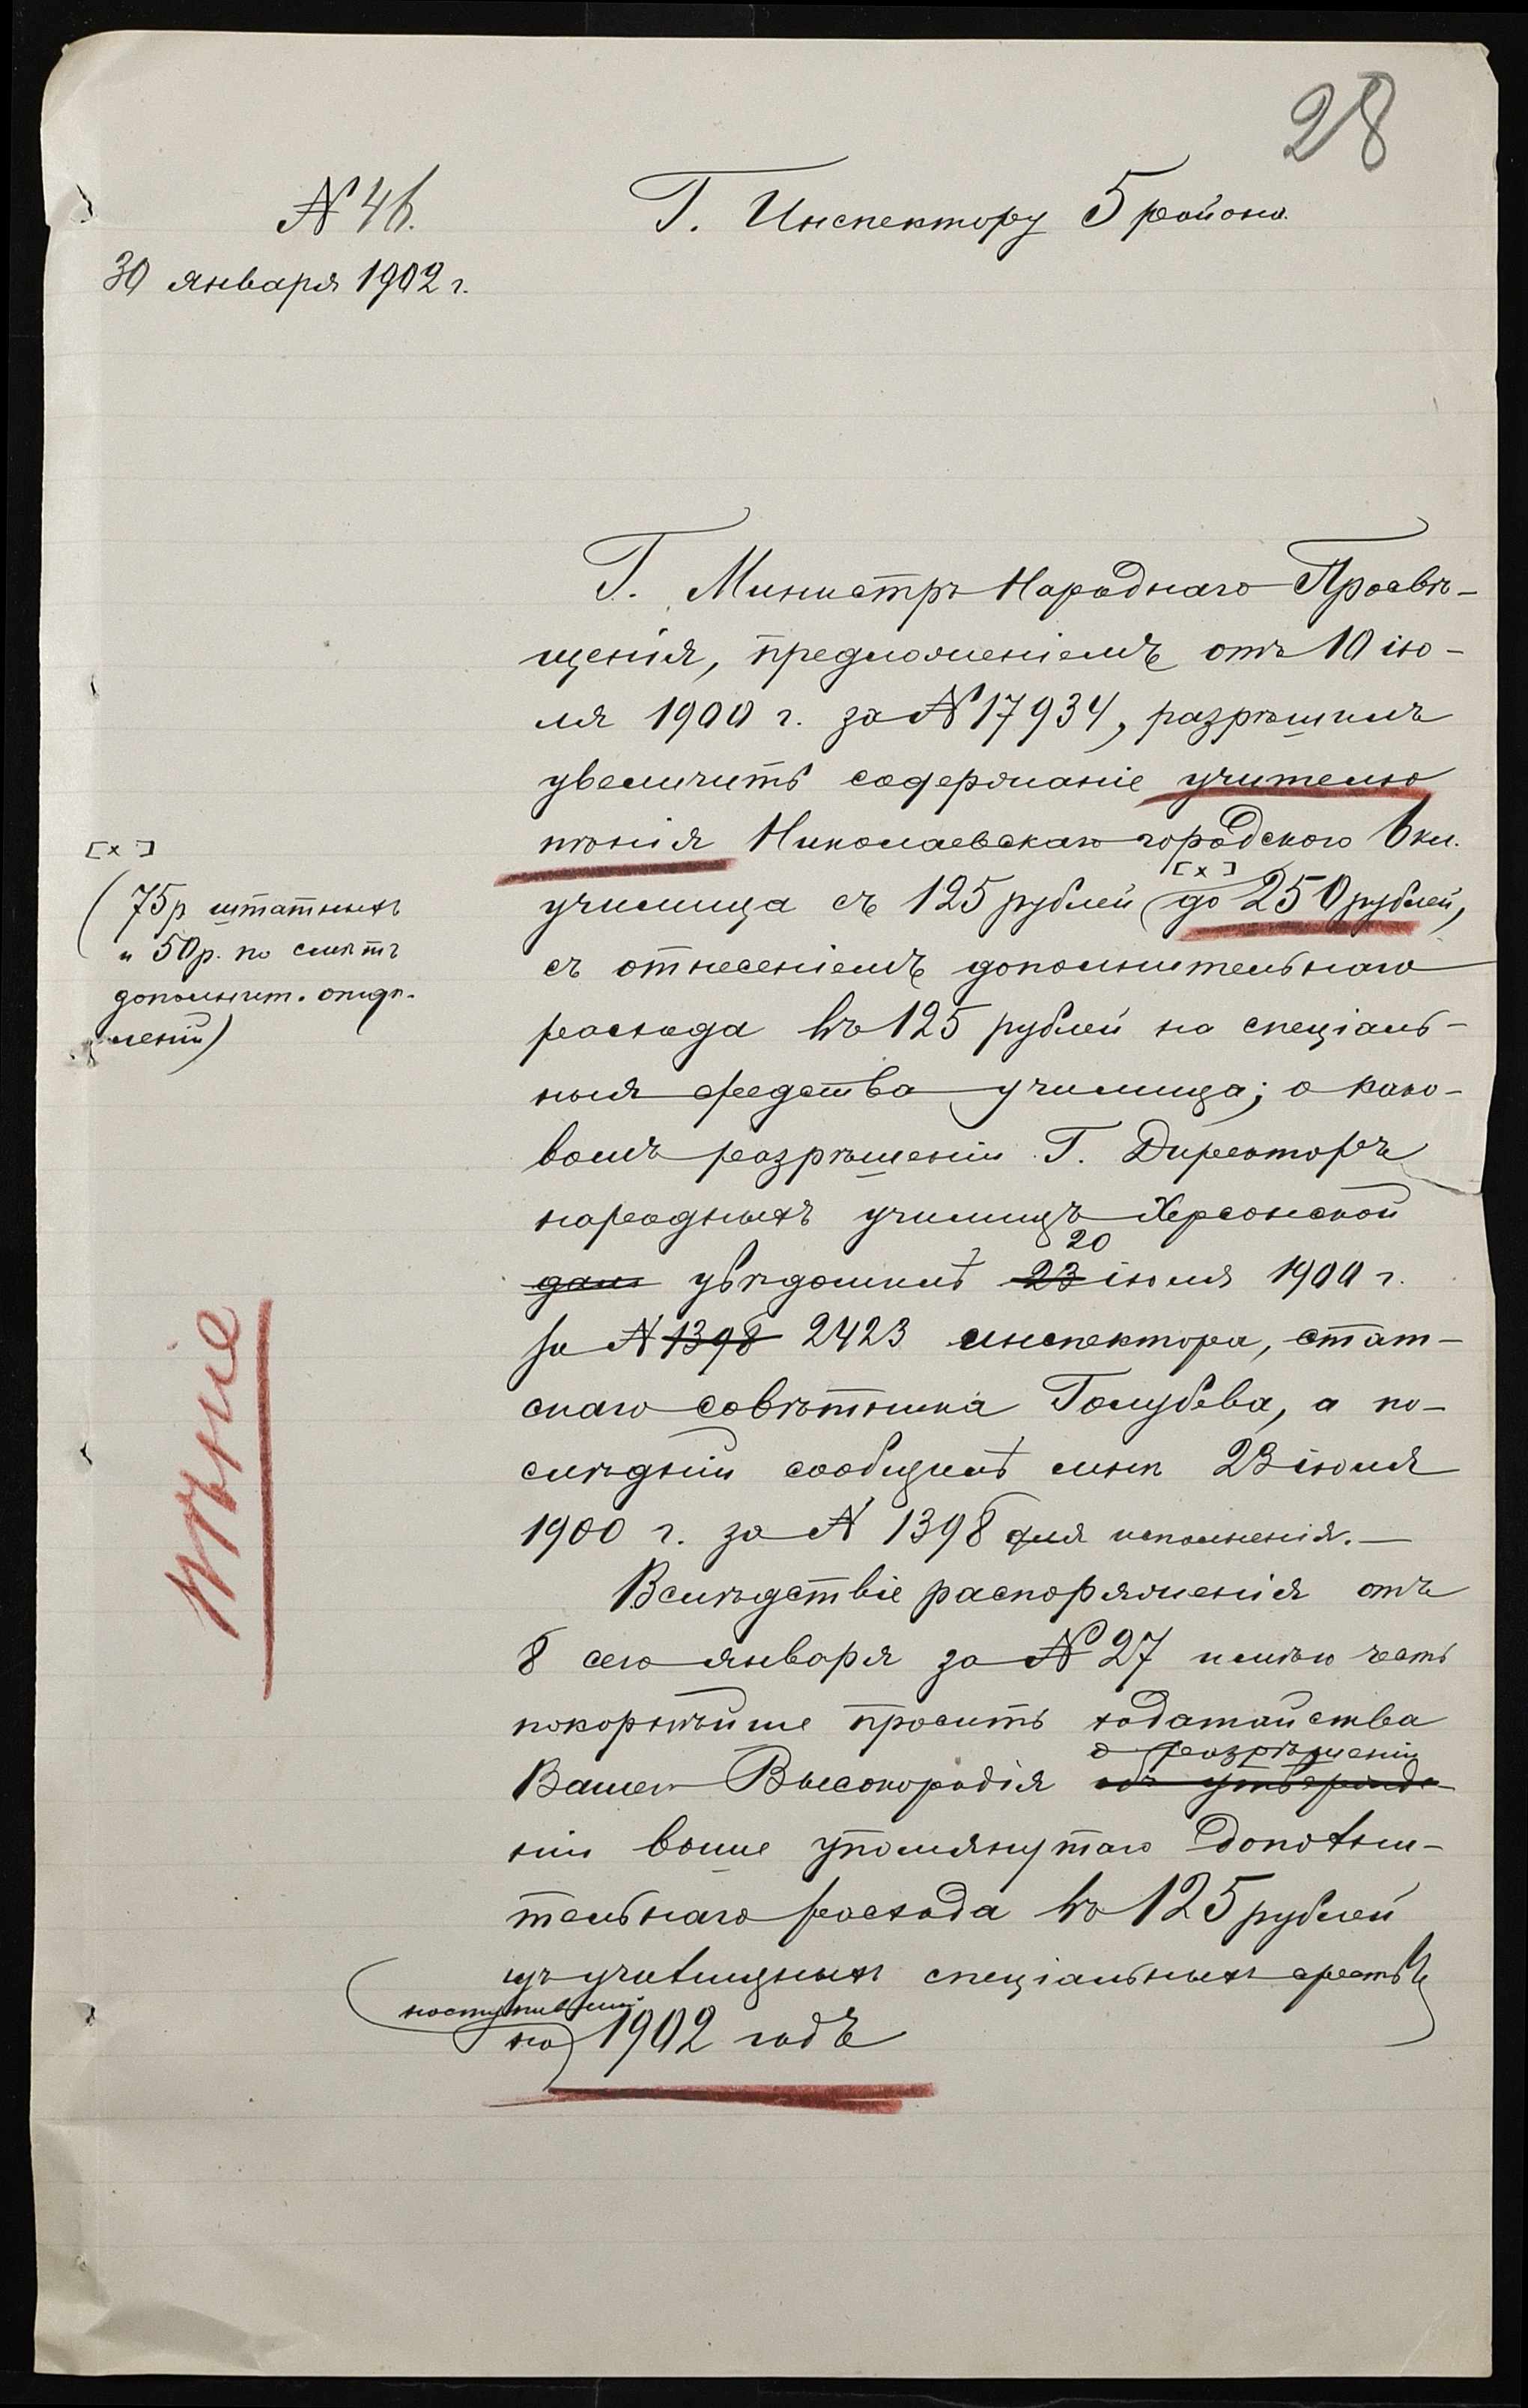 28
№ 46.
30 января 1902 г.
Г. Инспектору 5 района.
Г. Министръ Народнаго Просвѣ-
щенія, предложеніемъ отъ 10 ію-
ля 1900 г. за № 17934, разрѣшилъ
увеличить содержаніе учителю
пѣнія Николаевскаго городского 6 кл.
[x]
училища съ 125 рублей (до 250 рублей,
съ отнесеніемъ дополнительнаго
расхода въ 125 рублей на спеціаль-
ныя средства училища; о како-
вомъ разрѣшеніи Г. Директоръ
народныхъ училищъ Херсонской
20
дал увѣдомилъ 23 іюля 1900 г.
за № 1398 2423 инспектора, стат-
скаго совѣтника Голубева, а по-
слѣдній сообщилъ мнѣ 23 іюля
1900 г. за № 1398 для исполненія.—
Вслѣдствіе распоряженія отъ
8 сего января за № 27 имѣю честь
покорнѣйше просить ходатайства
о разрѣшеніи
Вашего Высокородія объ утвержде-
ніи выше упомянутаго дополни-
тельнаго расхода въ 125 рублей
изъ училищныхъ спеціальныхъ средствъ
на 1902 годъ
[x]
(75р штатныхъ
и 50р. по смѣтѣ
дополнит. опидѣ-
леній)
пѣніе